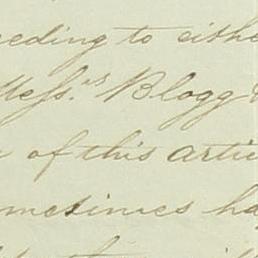 eeding to eithe
Mess.rs Blogg &
of this artic
ometimes ha